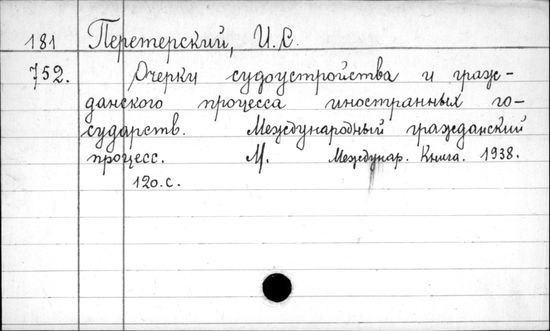 181 Перетерский, И.С.
752. Очерки судоустройства и граж-
данского процесса иностранных го-
сударств. Международный гражданский
процесс. М. Междунар. Книга. 1938.
120.с.